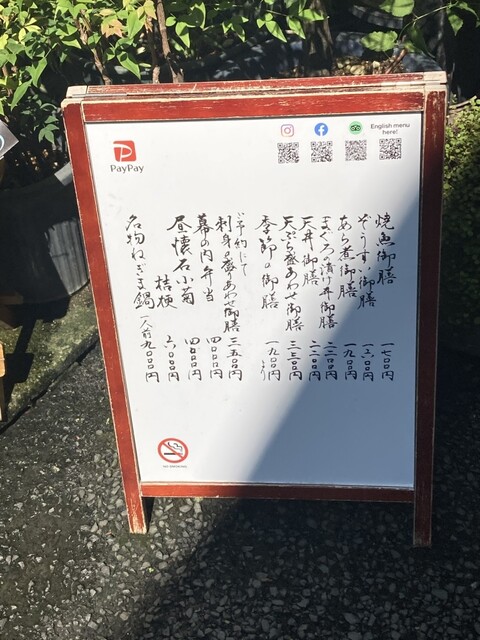 PayPay
English menu here!
焼魚御膳 一七〇〇円
ぞうすい御膳 一六〇〇円
あら煮御膳 一九〇〇円
まぐろの漬け丼御膳
天丼御膳 二二〇〇円
天ぷら盛あわせ御膳
季節の御膳 一九〇〇円より
ご予約にて
刺身盛りあわせ御膳 三五〇〇円
幕の内弁当 四〇〇〇円
昼懐石小菊 四〇〇〇円
桔梗 六〇〇〇円
名物ねぎま鍋 一人前九〇〇〇円
NO SMOKING